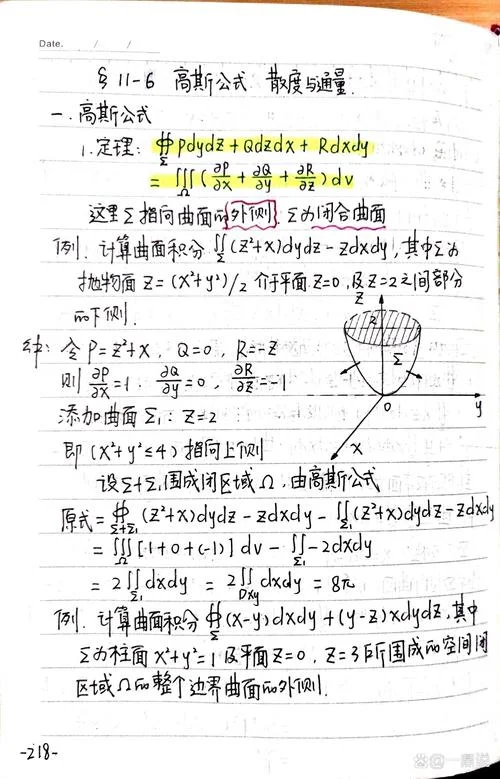 Date. / /
§ 11-6 高斯公式 散度与通量.
一. 高斯公式
1. 定理: ∯_Σ Pdydz + Qdzdx + Rdxdy
= ∭_Ω (∂P/∂x + ∂Q/∂y + ∂R/∂z) dv
这里Σ指向曲面的外侧. Σ为闭合曲面
例. 计算曲面积分 ∬_Σ (z²+x)dydz - zdxdy, 其中Σ为
抛物面 z = (x²+y²)/2 介于平面 z=0, 及 z=2 之间部分
的下侧.
解: 令 P = z²+x, Q=0, R=-z
则 ∂P/∂x = 1, ∂Q/∂y = 0, ∂R/∂z = -1
添加曲面 Σ₁: z=2
即 (x²+y²≤4) 指向上侧
z
2
Σ
0
y
x
设Σ+Σ₁围成闭区域Ω, 由高斯公式
原式 = ∯_Σ+Σ₁ (z²+x)dydz - zdxdy - ∬_Σ₁ (z²+x)dydz - zdxdy
= ∭_Ω [1+0+(-1)] dv - ∬_Σ₁ -2dxdy
= 2∬_Σ₁ dxdy = 2∬_Dxy dxdy = 8π
例. 计算曲面积分 ∯_Σ (x-y)dxdy + (y-z)xdydz, 其中
Σ为柱面 x²+y²=1 及平面 z=0, z=3 所围成的空间闭
区域Ω的整个边界曲面的外侧.
-218-